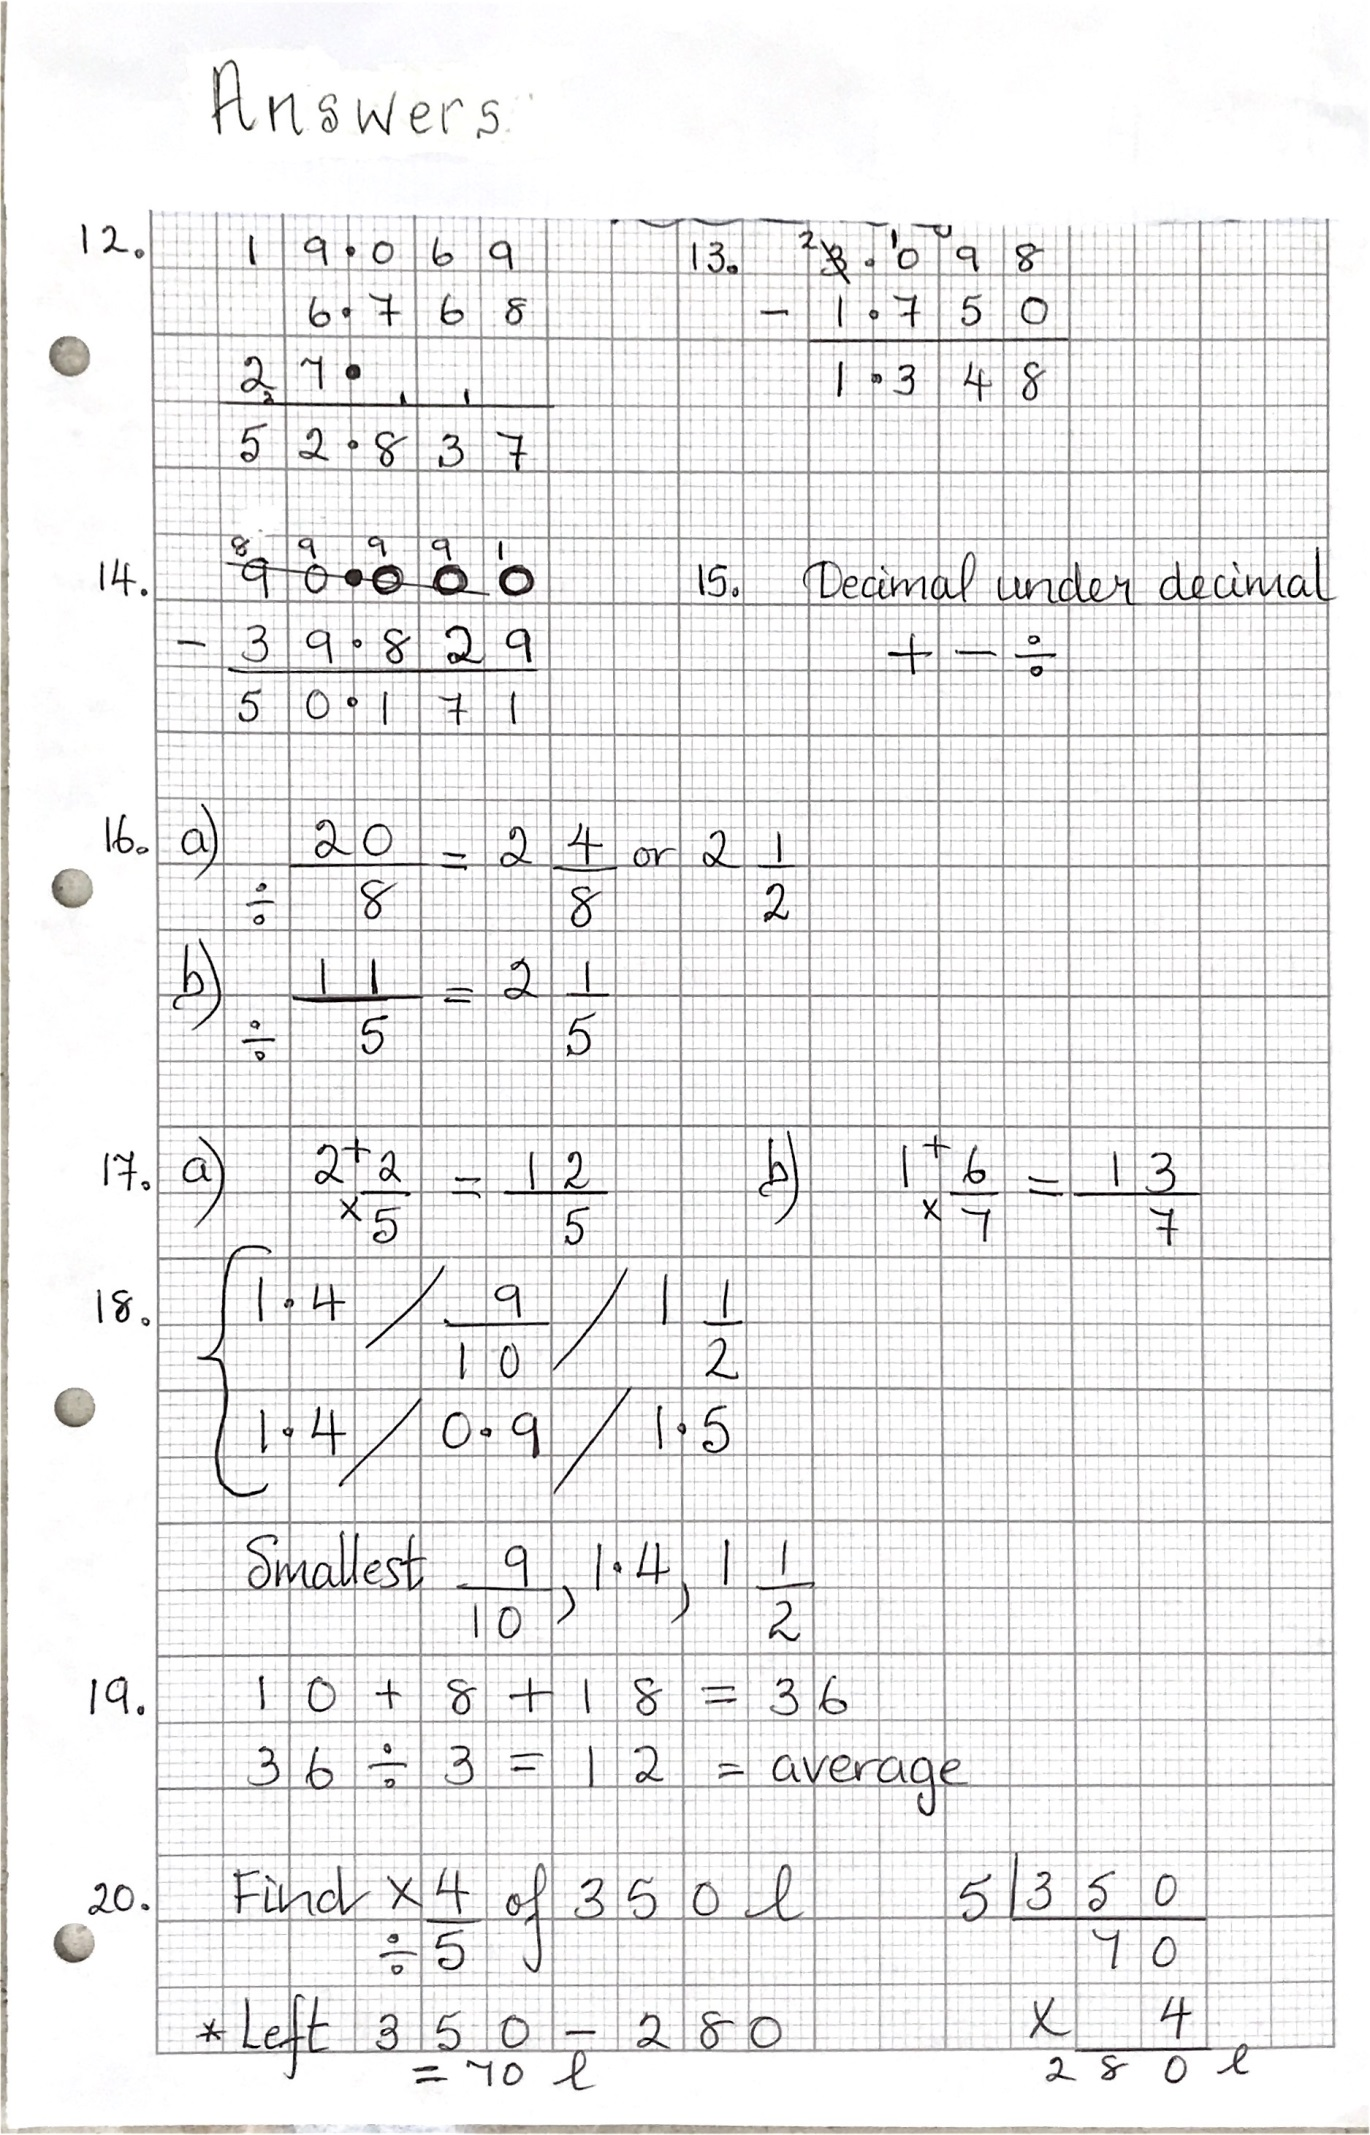 Answers
12. 1 9.0 6 9
6.7 6 8
2 7.
5 2.8 3 7
13. 3.0 9 8
- 1.7 5 0
1.3 4 8
14. 9 0.0 0 0
- 3 9.8 2 9
5 0.1 7 1
15. Decimal under decimal
+ - ÷
16. a) ÷ 20/8 = 2 4/8 or 2 1/2
b) ÷ 11/5 = 2 1/5
17. a) 2 + × 2/5 = 12/5
b) 1 + × 6/7 = 13/7
18. 1.4 / 9/10 / 1 1/2
1.4 / 0.9 / 1.5
Smallest 9/10, 1.4, 1 1/2
19. 10 + 8 + 18 = 36
36 ÷ 3 = 12 = average
20. Find × ÷ 4/5 of 350 l
* Left 350 - 280
= 70 l
5 | 350
70
× 4
280 l